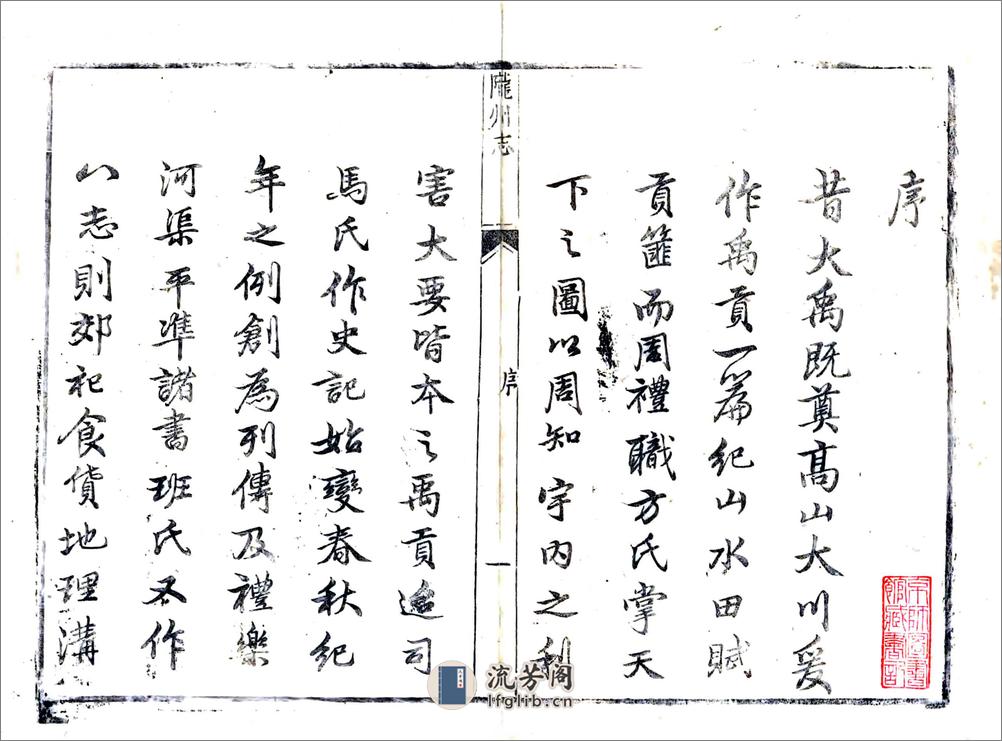 序
昔大禹既奠髙山大川爰
作禹貢一篇紀山水田賦
貢篚而周禮職方氏掌天
下之圖以周知宇内之利
隴州志
序
一
害大要皆本之禹貢逾司
馬氏作史記始變春秋紀
年之例創為列傳及禮樂
河渠平準諸書班氏又作
八志則郊祀食貨地理溝
京師圖書
館藏書記
流芳阁
lfglib.cn